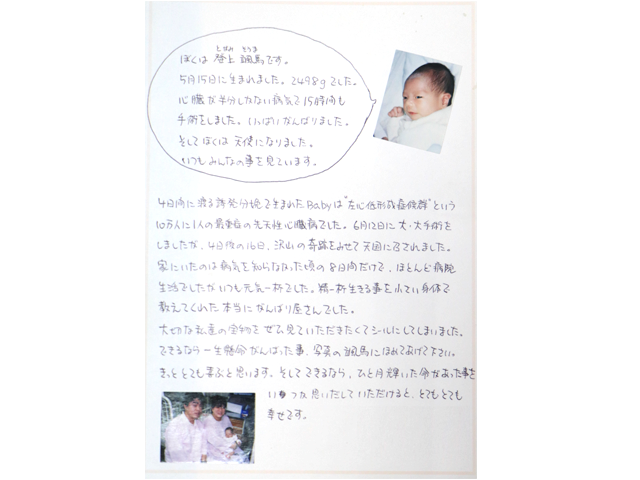 とがみ そうま
ぼくは 登上 颯馬です。
5月15日に生まれました。2498gでした。
心臓が半分しかない病気で15時間も
手術をしました。いっぱいがんばりました。
そしてぼくは天使になりました。
いつもみんなの事を見ています。
4日間に渡る誘発分娩で生まれたBabyは"左心低形成症候群"という
10万人に1人の最重症の先天性心臓病でした。6月12日に大・大手術を
しましたが、4日後の16日、沢山の奇跡をみせて天国に召されました。
家にいたのは病気を知らなかった頃の8日間だけで、ほとんど病院
生活でしたがいつも元気一杯でした。精一杯生きる事を小さい身体で
教えてくれた本当にがんばり屋さんでした。
大切な私達の宝物をぜひ見ていただきたくてシールにしてしまいました。
できるなら一生懸命がんばった事、写真の颯馬にほめてあげて下さい。
きっととても喜ぶと思います。そしてできるなら、ひと月輝いた命があった事を
いつか思いだしていただけると、とてもとても
幸せです。